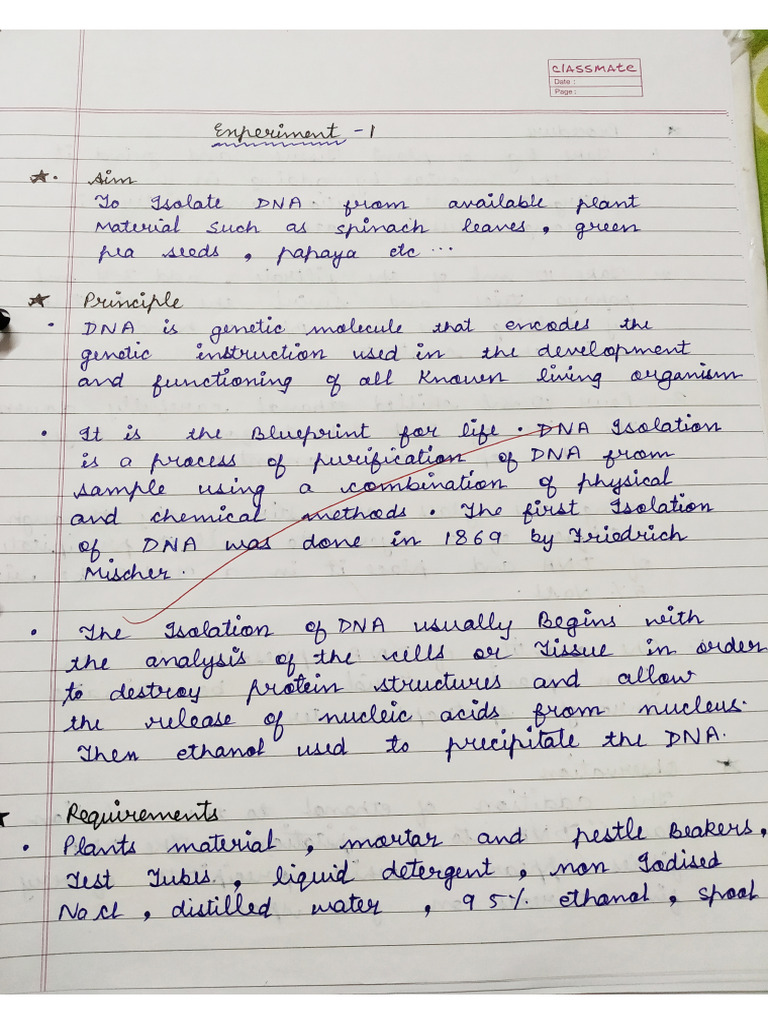 classmate
Date :
Page :
Experiment - 1
Aim
To Isolate DNA from available plant
Material Such as spinach leaves, green
pea seeds, papaya etc ...
Principle
• DNA is genetic molecule that encodes the
genetic instruction used in the development
and functioning of all known living organism
• It is the Blueprint for life. DNA Isolation
is a process of purification of DNA from
sample using a combination of physical
and chemical methods. The first Isolation
of DNA was done in 1869 by Friedrich
Mischer.
• The Isolation of DNA usually Begins with
the analysis of the cells or Tissue in order
to destroy protein structures and allow
the release of nucleic acids from nucleus.
Then ethanol used to precipitate the DNA.
Requirements
• Plants material, mortar and pestle Beakers,
Test Tubes, liquid detergent, non Iodised
NaCl, distilled water, 95% ethanol, spool